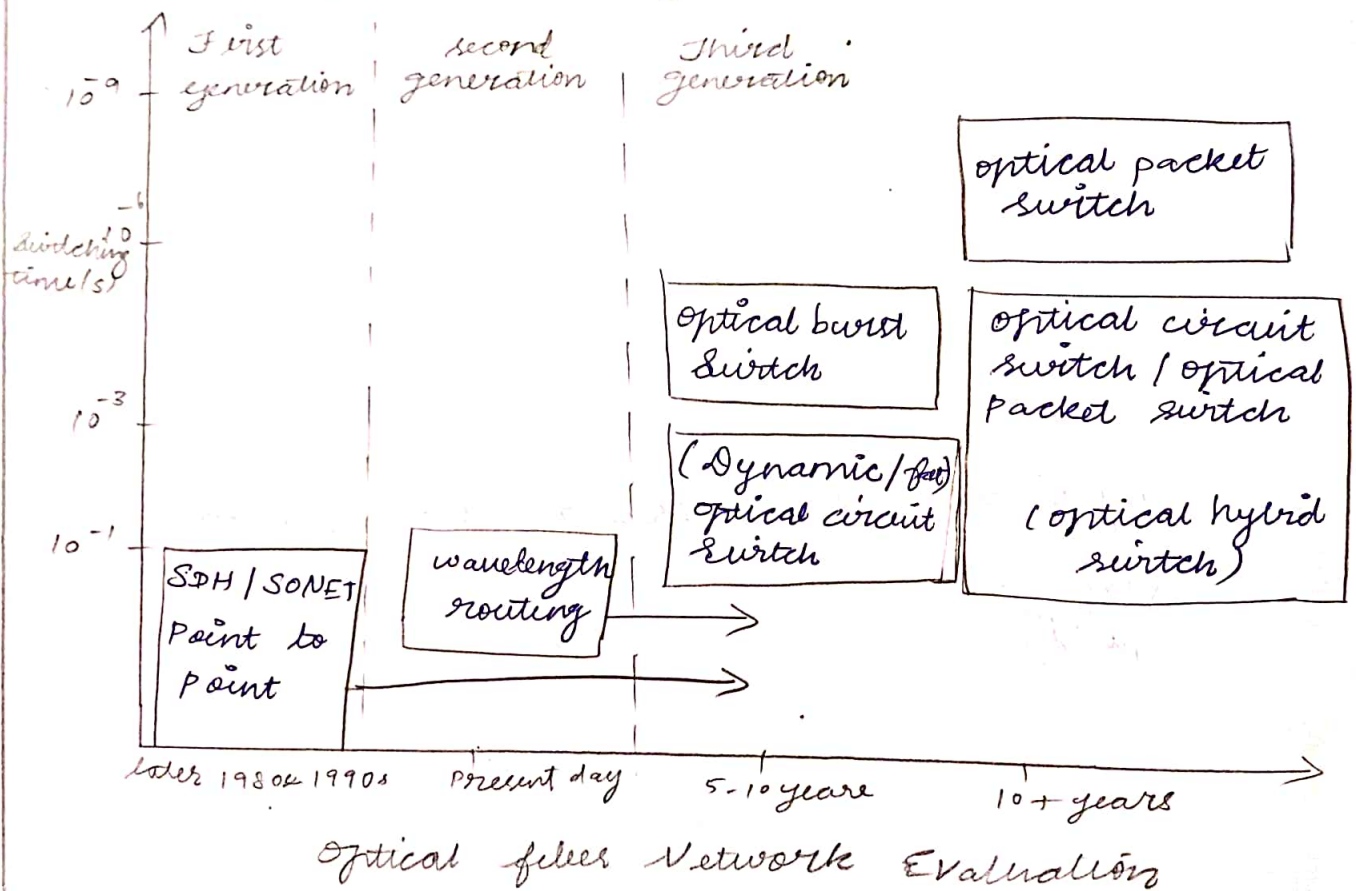 First
generation
second
generation
Third
generation
10⁻⁹
10⁻⁶
Switching
time(s)
10⁻³
10⁻¹
optical packet
switch
optical burst
switch
optical circuit
switch / optical
packet switch
(optical hybrid
switch)
(Dynamic/
optical circuit
switch
wavelength
routing
SDH / SONET
Point to
Point
later 1980s 1990s
Present day
5-10 years
10+ years
optical fiber Network Evaluation